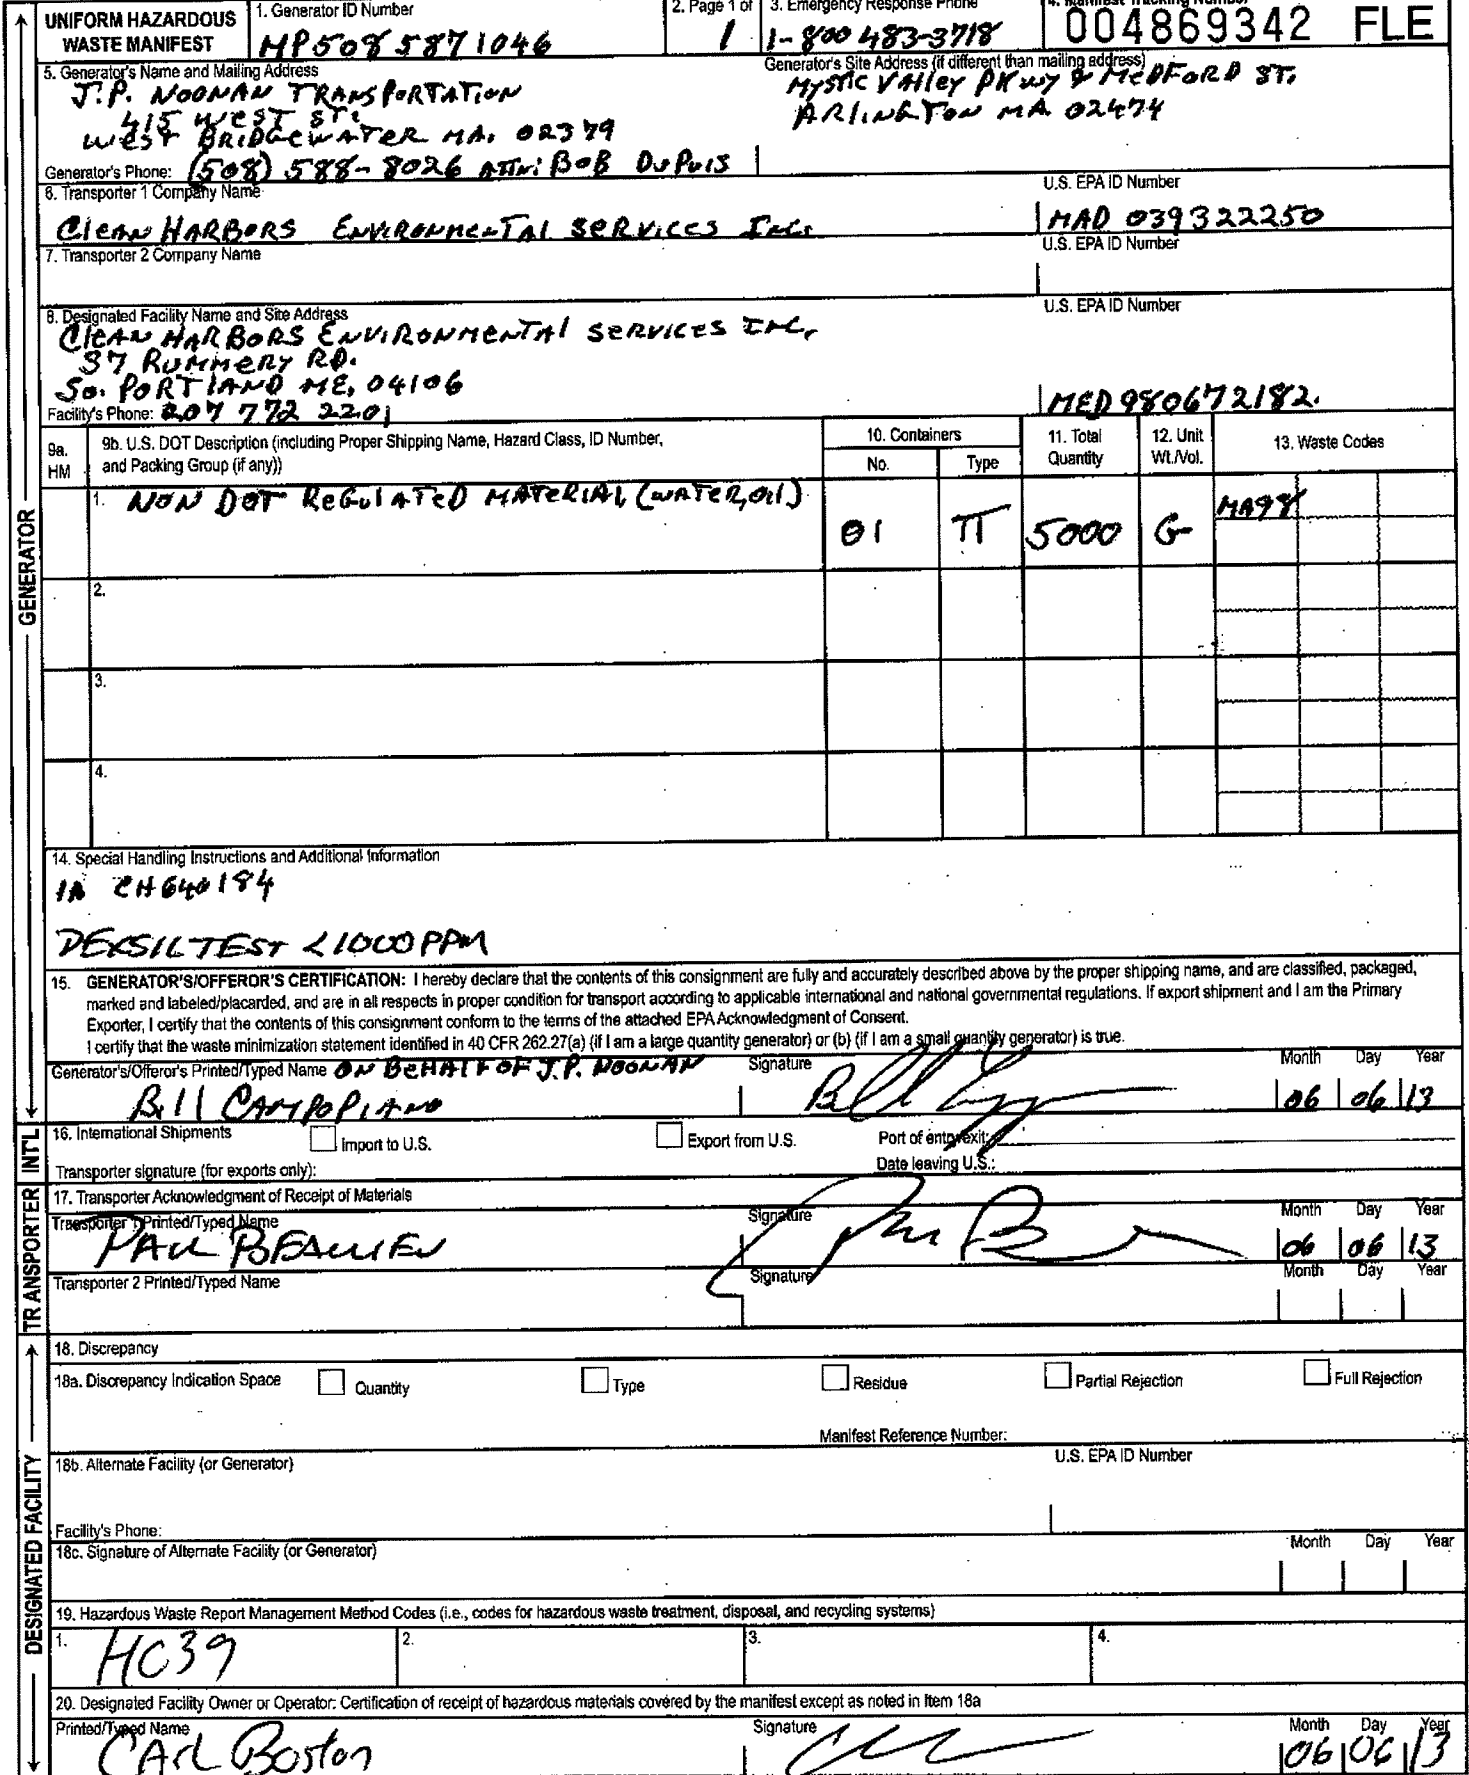 UNIFORM HAZARDOUS WASTE MANIFEST
1. Generator ID Number
MP5085871046
2. Page 1 of
1
3. Emergency Response Phone
1-800 483-3718
4. Manifest Tracking Number
004869342 FLE
5. Generator's Name and Mailing Address
J.P. NOONAN TRANSPORTATION
415 WEST ST.
WEST BRIDGEWATER MA. 02379
Generator's Phone: (508) 588-8026 ATTN: BOB DUPUIS
Generator's Site Address (if different than mailing address)
MYSTIC VAlley PKWY & MEDFORD ST.
ARLINGTON MA 02474
6. Transporter 1 Company Name
U.S. EPA ID Number
CleAN HARBORS ENVIRONMENTAL SERVICES INC.
MAD 039322250
7. Transporter 2 Company Name
U.S. EPA ID Number
8. Designated Facility Name and Site Address
U.S. EPA ID Number
CleAN HARBORS ENVIRONMENTAL SERVICES INC.
37 RUMMERY RD.
So. PORTLAND ME. 04106
Facility's Phone: 207 772 2201
MED980672182.
9a. HM
9b. U.S. DOT Description (including Proper Shipping Name, Hazard Class, ID Number, and Packing Group (if any))
10. Containers
No.
Type
11. Total Quantity
12. Unit Wt./Vol.
13. Waste Codes
1. NON DOT REGULATED MATERIAL (WATER, OIL)
01
TT
5000
G
MA98
2.
3.
4.
14. Special Handling Instructions and Additional Information
1A CH640184
DEXSIL TEST <1000 PPM
15. GENERATOR'S/OFFEROR'S CERTIFICATION: I hereby declare that the contents of this consignment are fully and accurately described above by the proper shipping name, and are classified, packaged,
marked and labeled/placarded, and are in all respects in proper condition for transport according to applicable international and national governmental regulations. If export shipment and I am the Primary
Exporter, I certify that the contents of this consignment conform to the terms of the attached EPA Acknowledgment of Consent.
I certify that the waste minimization statement identified in 40 CFR 262.27(a) (if I am a large quantity generator) or (b) (if I am a small quantity generator) is true.
Generator's/Offeror's Printed/Typed Name ON BEHALF OF J.P. NOONAN
Signature
Month Day Year
Bill CAMPOPIANO
06 06 13
16. International Shipments
Import to U.S.
Export from U.S.
Port of entry/exit:
Transporter signature (for exports only):
Date leaving U.S.:
17. Transporter Acknowledgment of Receipt of Materials
Transporter 1 Printed/Typed Name
Signature
Month Day Year
PAUL BEAULIEU
06 06 13
Transporter 2 Printed/Typed Name
Signature
Month Day Year
18. Discrepancy
18a. Discrepancy Indication Space
Quantity
Type
Residue
Partial Rejection
Full Rejection
Manifest Reference Number:
18b. Alternate Facility (or Generator)
U.S. EPA ID Number
Facility's Phone:
18c. Signature of Alternate Facility (or Generator)
Month Day Year
19. Hazardous Waste Report Management Method Codes (i.e., codes for hazardous waste treatment, disposal, and recycling systems)
1. HO39
2.
3.
4.
20. Designated Facility Owner or Operator: Certification of receipt of hazardous materials covered by the manifest except as noted in Item 18a
Printed/Typed Name
Signature
Month Day Year
CArl Boston
06 06 13
GENERATOR
INT'L
TRANSPORTER
DESIGNATED FACILITY